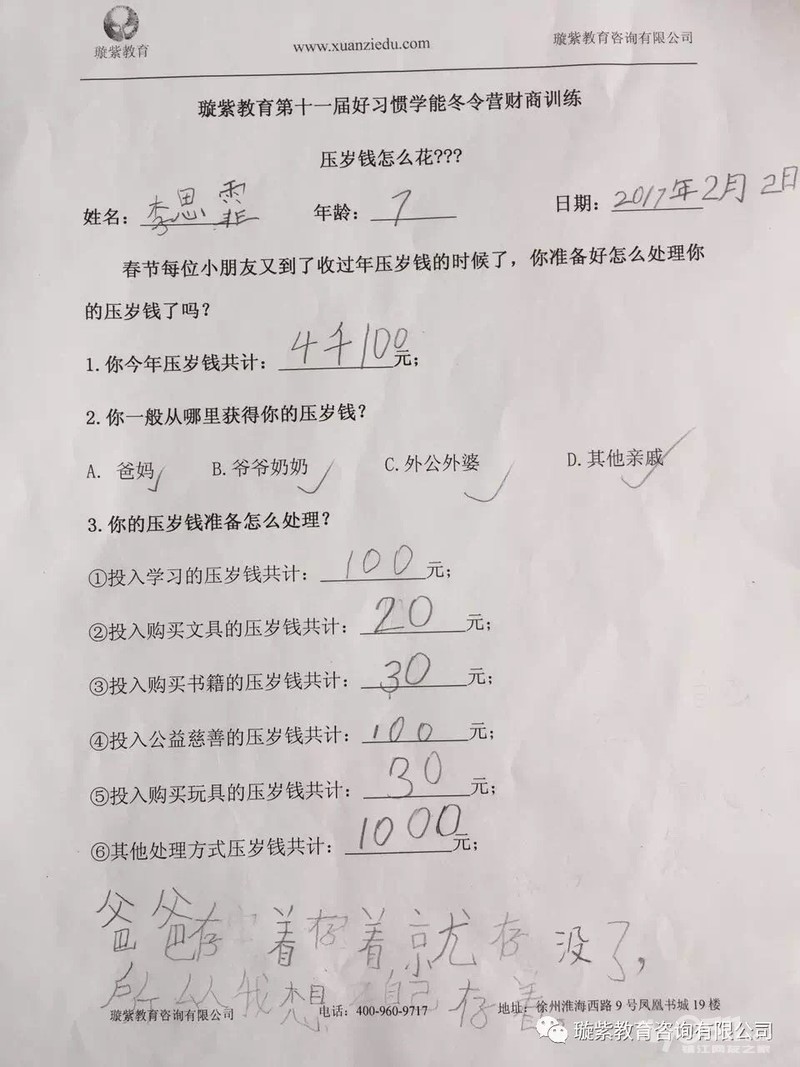 璇紫教育
www.xuanziedu.com
璇紫教育咨询有限公司
璇紫教育第十一届好习惯学能冬令营财商训练
压岁钱怎么花???
姓名:李思霏 年龄:7 日期:2017年2月2日
春节每位小朋友又到了收过年压岁钱的时候了，你准备好怎么处理你
的压岁钱了吗？
1.你今年压岁钱共计：4千100元；
2.你一般从哪里获得你的压岁钱？
A. 爸妈 B.爷爷奶奶 C.外公外婆 D.其他亲戚
3.你的压岁钱准备怎么处理？
①投入学习的压岁钱共计：100元；
②投入购买文具的压岁钱共计：20元；
③投入购买书籍的压岁钱共计：30元；
④投入公益慈善的压岁钱共计：100元；
⑤投入购买玩具的压岁钱共计：30元；
⑥其他处理方式压岁钱共计：1000元；
爸爸存着存着就存没了，
所从我想自己存着
璇紫教育咨询有限公司 电话：400-960-9717 地址：徐州淮海西路9号凤凰书城19楼
璇紫教育咨询有限公司